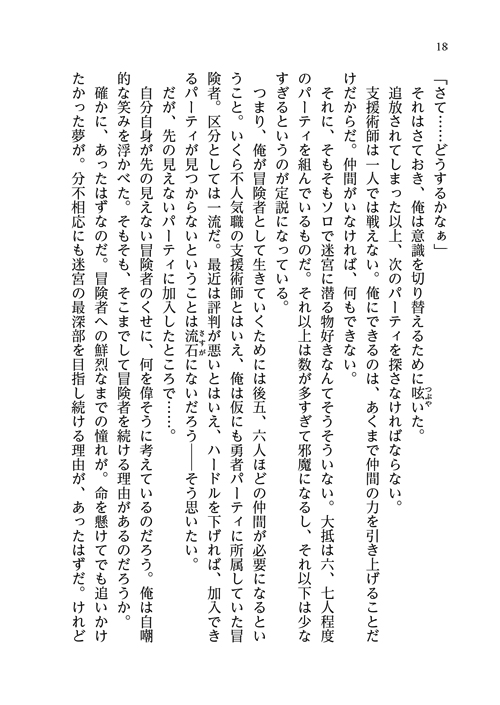 18
「さて……どうするかなぁ」
それはさておき、俺は意識を切り替えるために呟いた。
追放されてしまった以上、次のパーティを探さなければならない。
支援術師は一人では戦えない。俺にできるのは、あくまで仲間の力を引き上げることだ
けだからだ。仲間がいなければ、何もできない。
それに、そもそもソロで迷宮に潜る物好きなんてそうそういない。大抵は六、七人程度
のパーティを組んでいるものだ。それ以上は数が多すぎて邪魔になるし、それ以下は少な
すぎるというのが定説になっている。
つまり、俺が冒険者として生きていくためには後五、六人ほどの仲間が必要になるとい
うこと。いくら不人気職の支援術師とはいえ、俺は仮にも勇者パーティに所属していた冒
険者。区分としては一流だ。最近は評判が悪いとはいえ、ハードルを下げれば、加入でき
るパーティが見つからないということは流石にないだろう――そう思いたい。
だが、先の見えないパーティに加入したところで……。
自分自身が先の見えない冒険者のくせに、何を偉そうに考えているのだろう。俺は自嘲
的な笑みを浮かべた。そもそも、そこまでして冒険者を続ける理由があるのだろうか。
確かに、あったはずなのだ。冒険者への鮮烈なまでの憧れが。命を懸けてでも追いかけ
たかった夢が。分不相応にも迷宮の最深部を目指し続ける理由が、あったはずだ。けれど